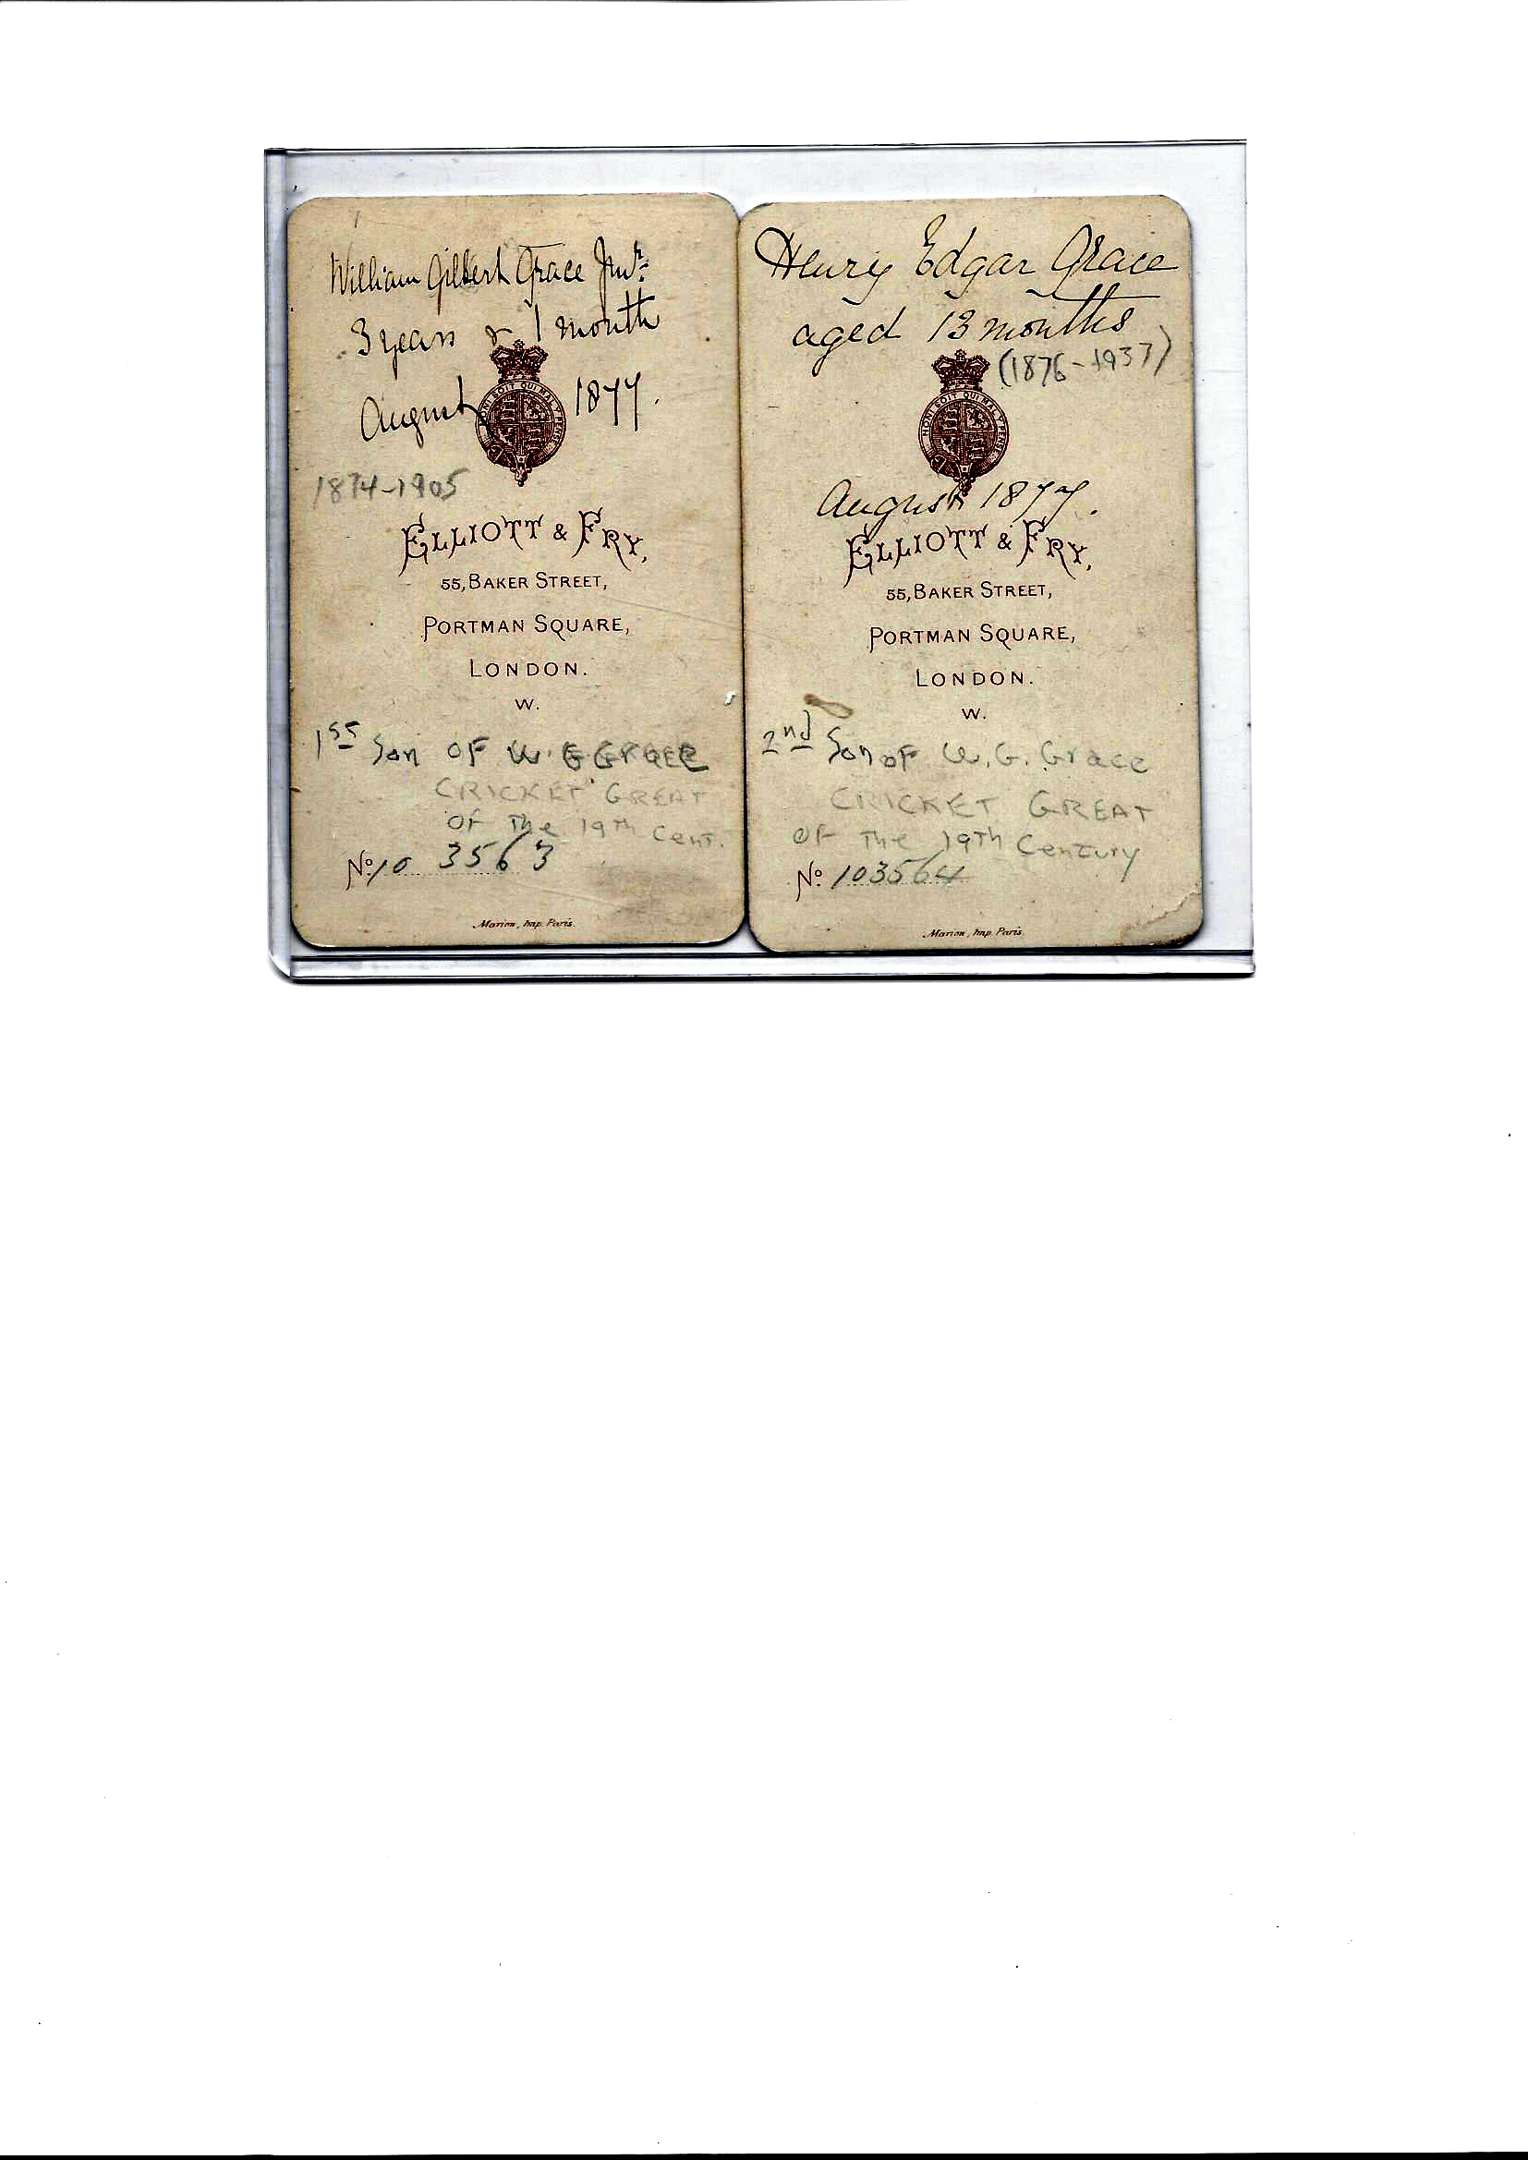 William Gilbert Grace Junr.
3 years & 1 month
August 1877.
HONI SOIT QUI MAL Y PENSE
1874-1905
ELLIOTT & FRY,
55, BAKER STREET,
PORTMAN SQUARE,
LONDON.
W.
1st Son OF W G GRACE
CRICKET GREAT
OF The 19Th Cent.
No. 10 3563
Marion, Imp. Paris.
Henry Edgar Grace
aged 13 months
(1876-1937)
HONI SOIT QUI MAL Y PENSE
August 1877.
ELLIOTT & FRY,
55, BAKER STREET,
PORTMAN SQUARE,
LONDON.
W.
2nd Son OF W. G. Grace
CRICKET GREAT
OF The 19Th Century
No. 103564
Marion, Imp. Paris.